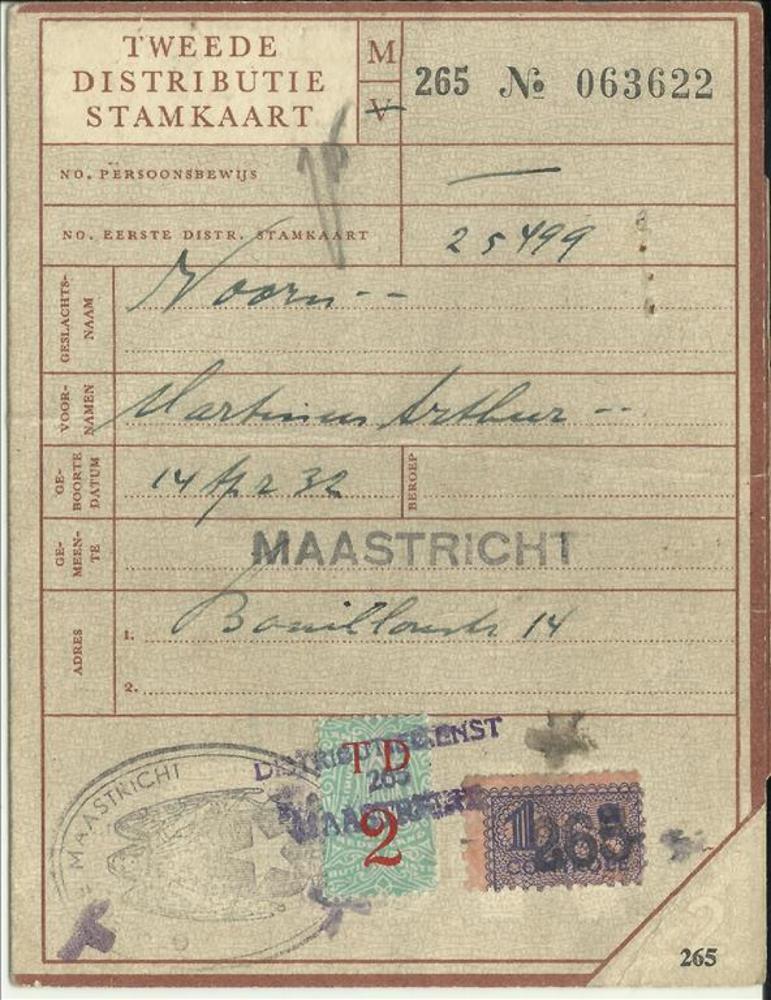 TWEEDE
DISTRIBUTIE
STAMKAART
M
V
265 № 063622
NO. PERSOONSBEWIJS —
NO. EERSTE DISTR. STAMKAART 25499
GESLACHTS-
NAAM
Noorn--
VOOR-
NAMEN
Martinus Arthur --
GE-
BOORTE
DATUM
14 Apr 32
BEROEP
GE-
MEEN-
TE
MAASTRICHT
ADRES
1. Bouillonstr 14
2.
DISTRIBUTIEDIENST
265
MAASTRICHT
TD
2
MAASTRICHT
1
265
265